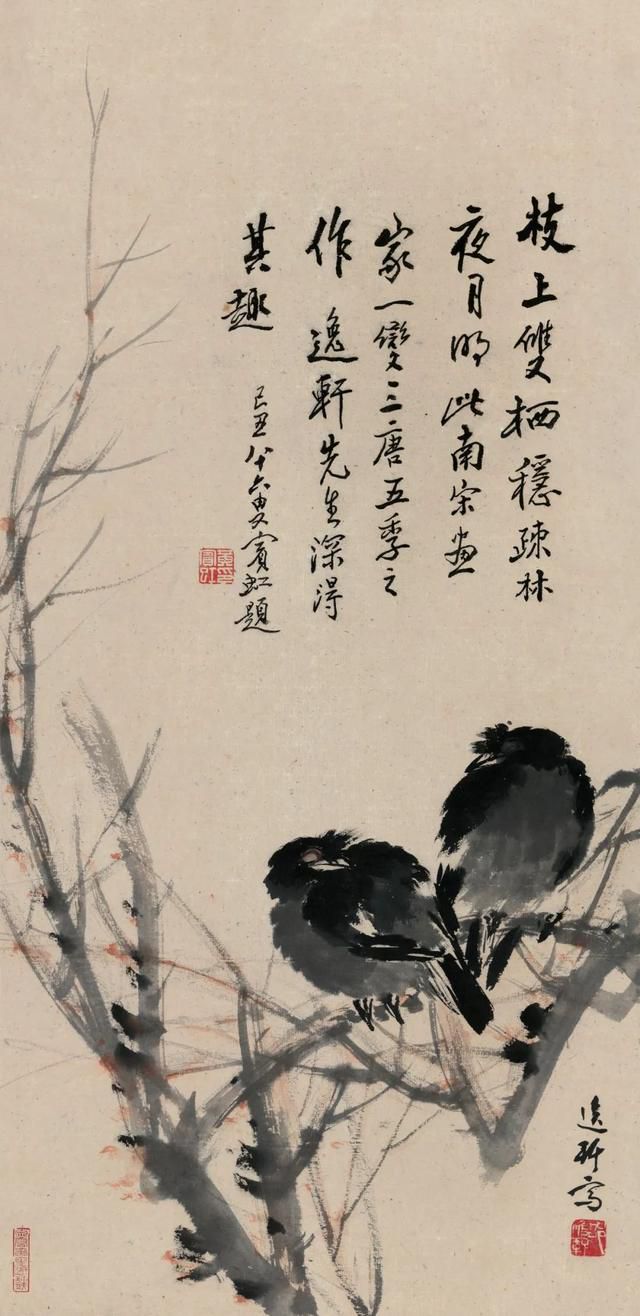 枝上雙栖穩疎林
夜月明此南宋畫
家一變三唐五季之
作逸軒先生深得
其趣
己丑八十六叟賓虹題
逸軒寫